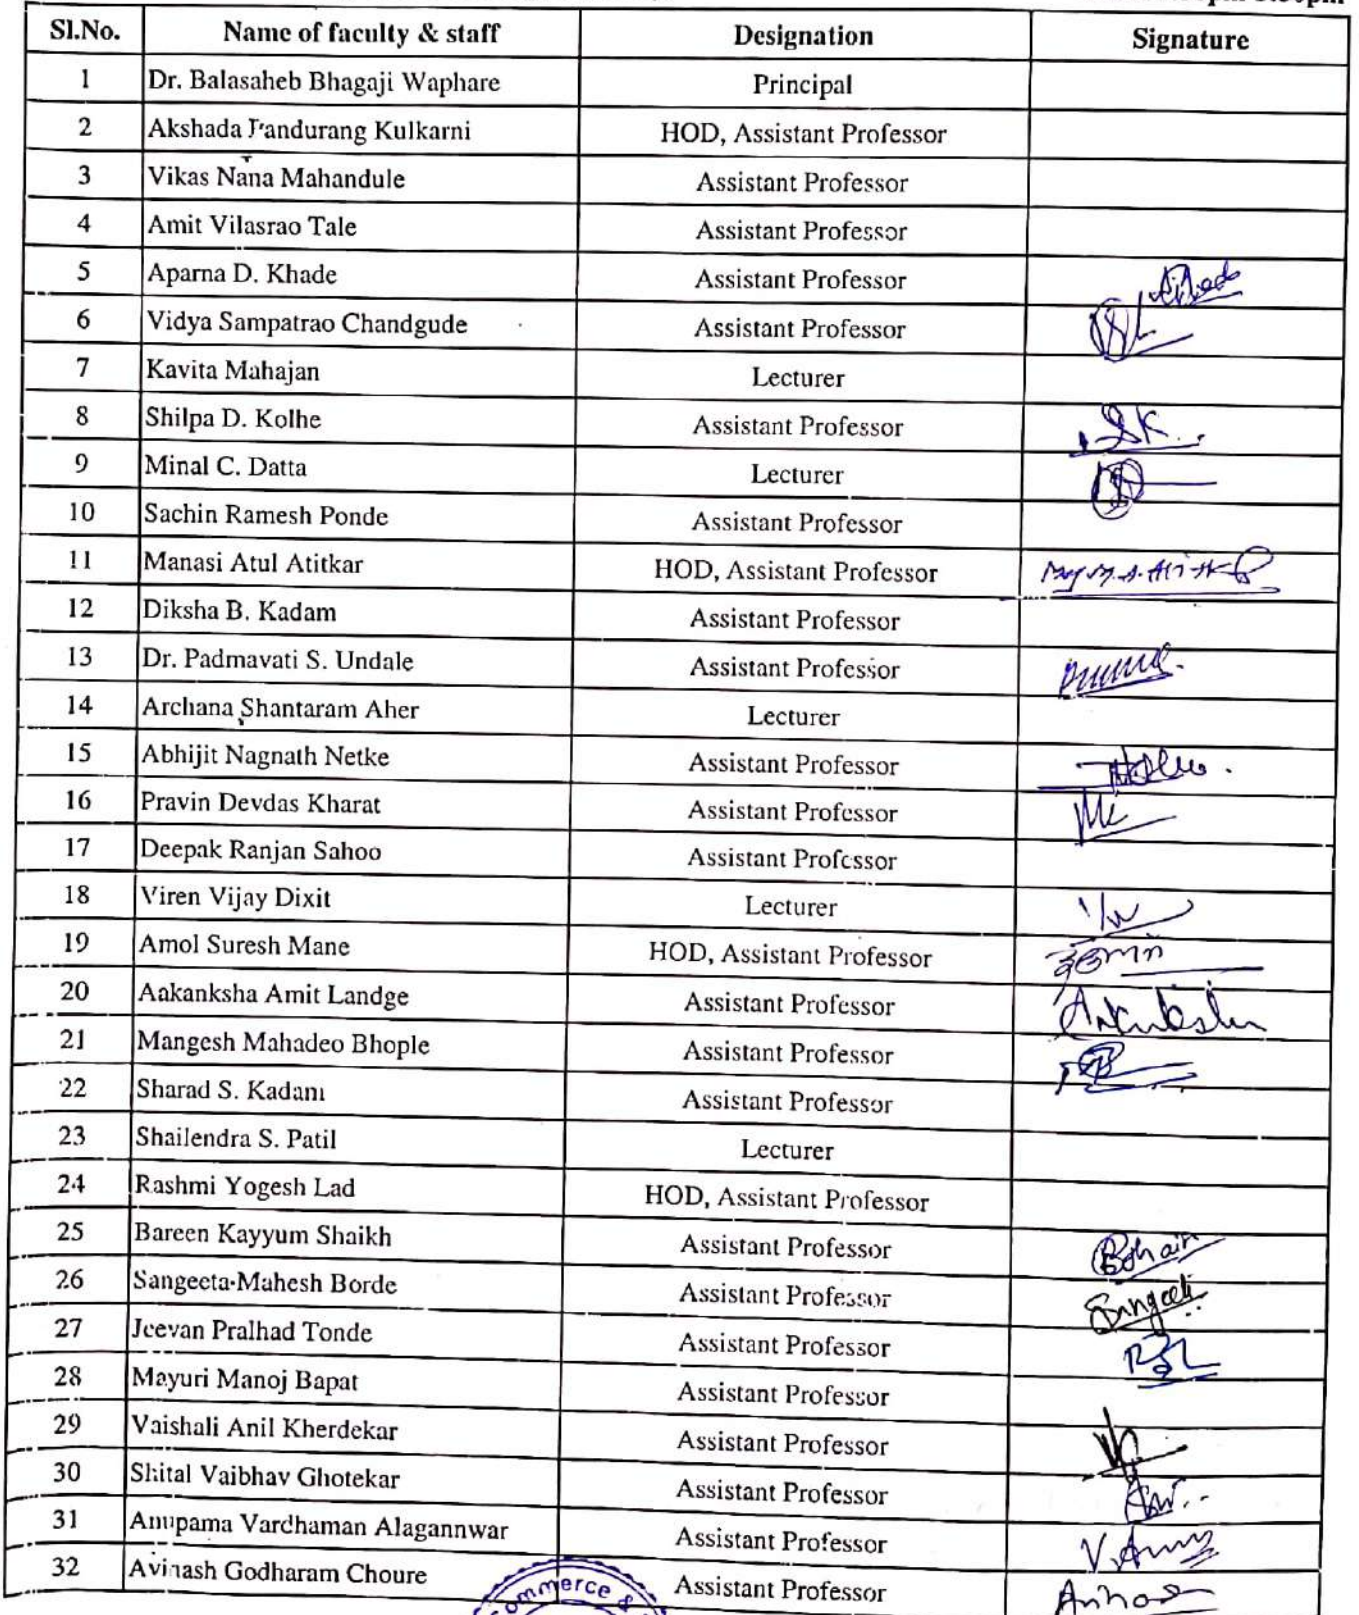 Sl.No. Name of faculty & staff Designation Signature
1 Dr. Balasaheb Bhagaji Waphare Principal
2 Akshada Pandurang Kulkarni HOD, Assistant Professor
3 Vikas Nana Mahandule Assistant Professor
4 Amit Vilasrao Tale Assistant Professor
5 Aparna D. Khade Assistant Professor
6 Vidya Sampatrao Chandgude Assistant Professor
7 Kavita Mahajan Lecturer
8 Shilpa D. Kolhe Assistant Professor SK
9 Minal C. Datta Lecturer
10 Sachin Ramesh Ponde Assistant Professor
11 Manasi Atul Atitkar HOD, Assistant Professor
12 Diksha B. Kadam Assistant Professor
13 Dr. Padmavati S. Undale Assistant Professor
14 Archana Shantaram Aher Lecturer
15 Abhijit Nagnath Netke Assistant Professor
16 Pravin Devdas Kharat Assistant Professor
17 Deepak Ranjan Sahoo Assistant Professor
18 Viren Vijay Dixit Lecturer
19 Amol Suresh Mane HOD, Assistant Professor
20 Aakanksha Amit Landge Assistant Professor
21 Mangesh Mahadeo Bhople Assistant Professor
22 Sharad S. Kadam Assistant Professor
23 Shailendra S. Patil Lecturer
24 Rashmi Yogesh Lad HOD, Assistant Professor
25 Bareen Kayyum Shaikh Assistant Professor
26 Sangeeta Mahesh Borde Assistant Professor Sangeeta
27 Jeevan Pralhad Tonde Assistant Professor
28 Mayuri Manoj Bapat Assistant Professor
29 Vaishali Anil Kherdekar Assistant Professor
30 Shital Vaibhav Ghotekar Assistant Professor
31 Anupama Vardhaman Alagannwar Assistant Professor
32 Avinash Godharam Choure Assistant Professor
ommerce &